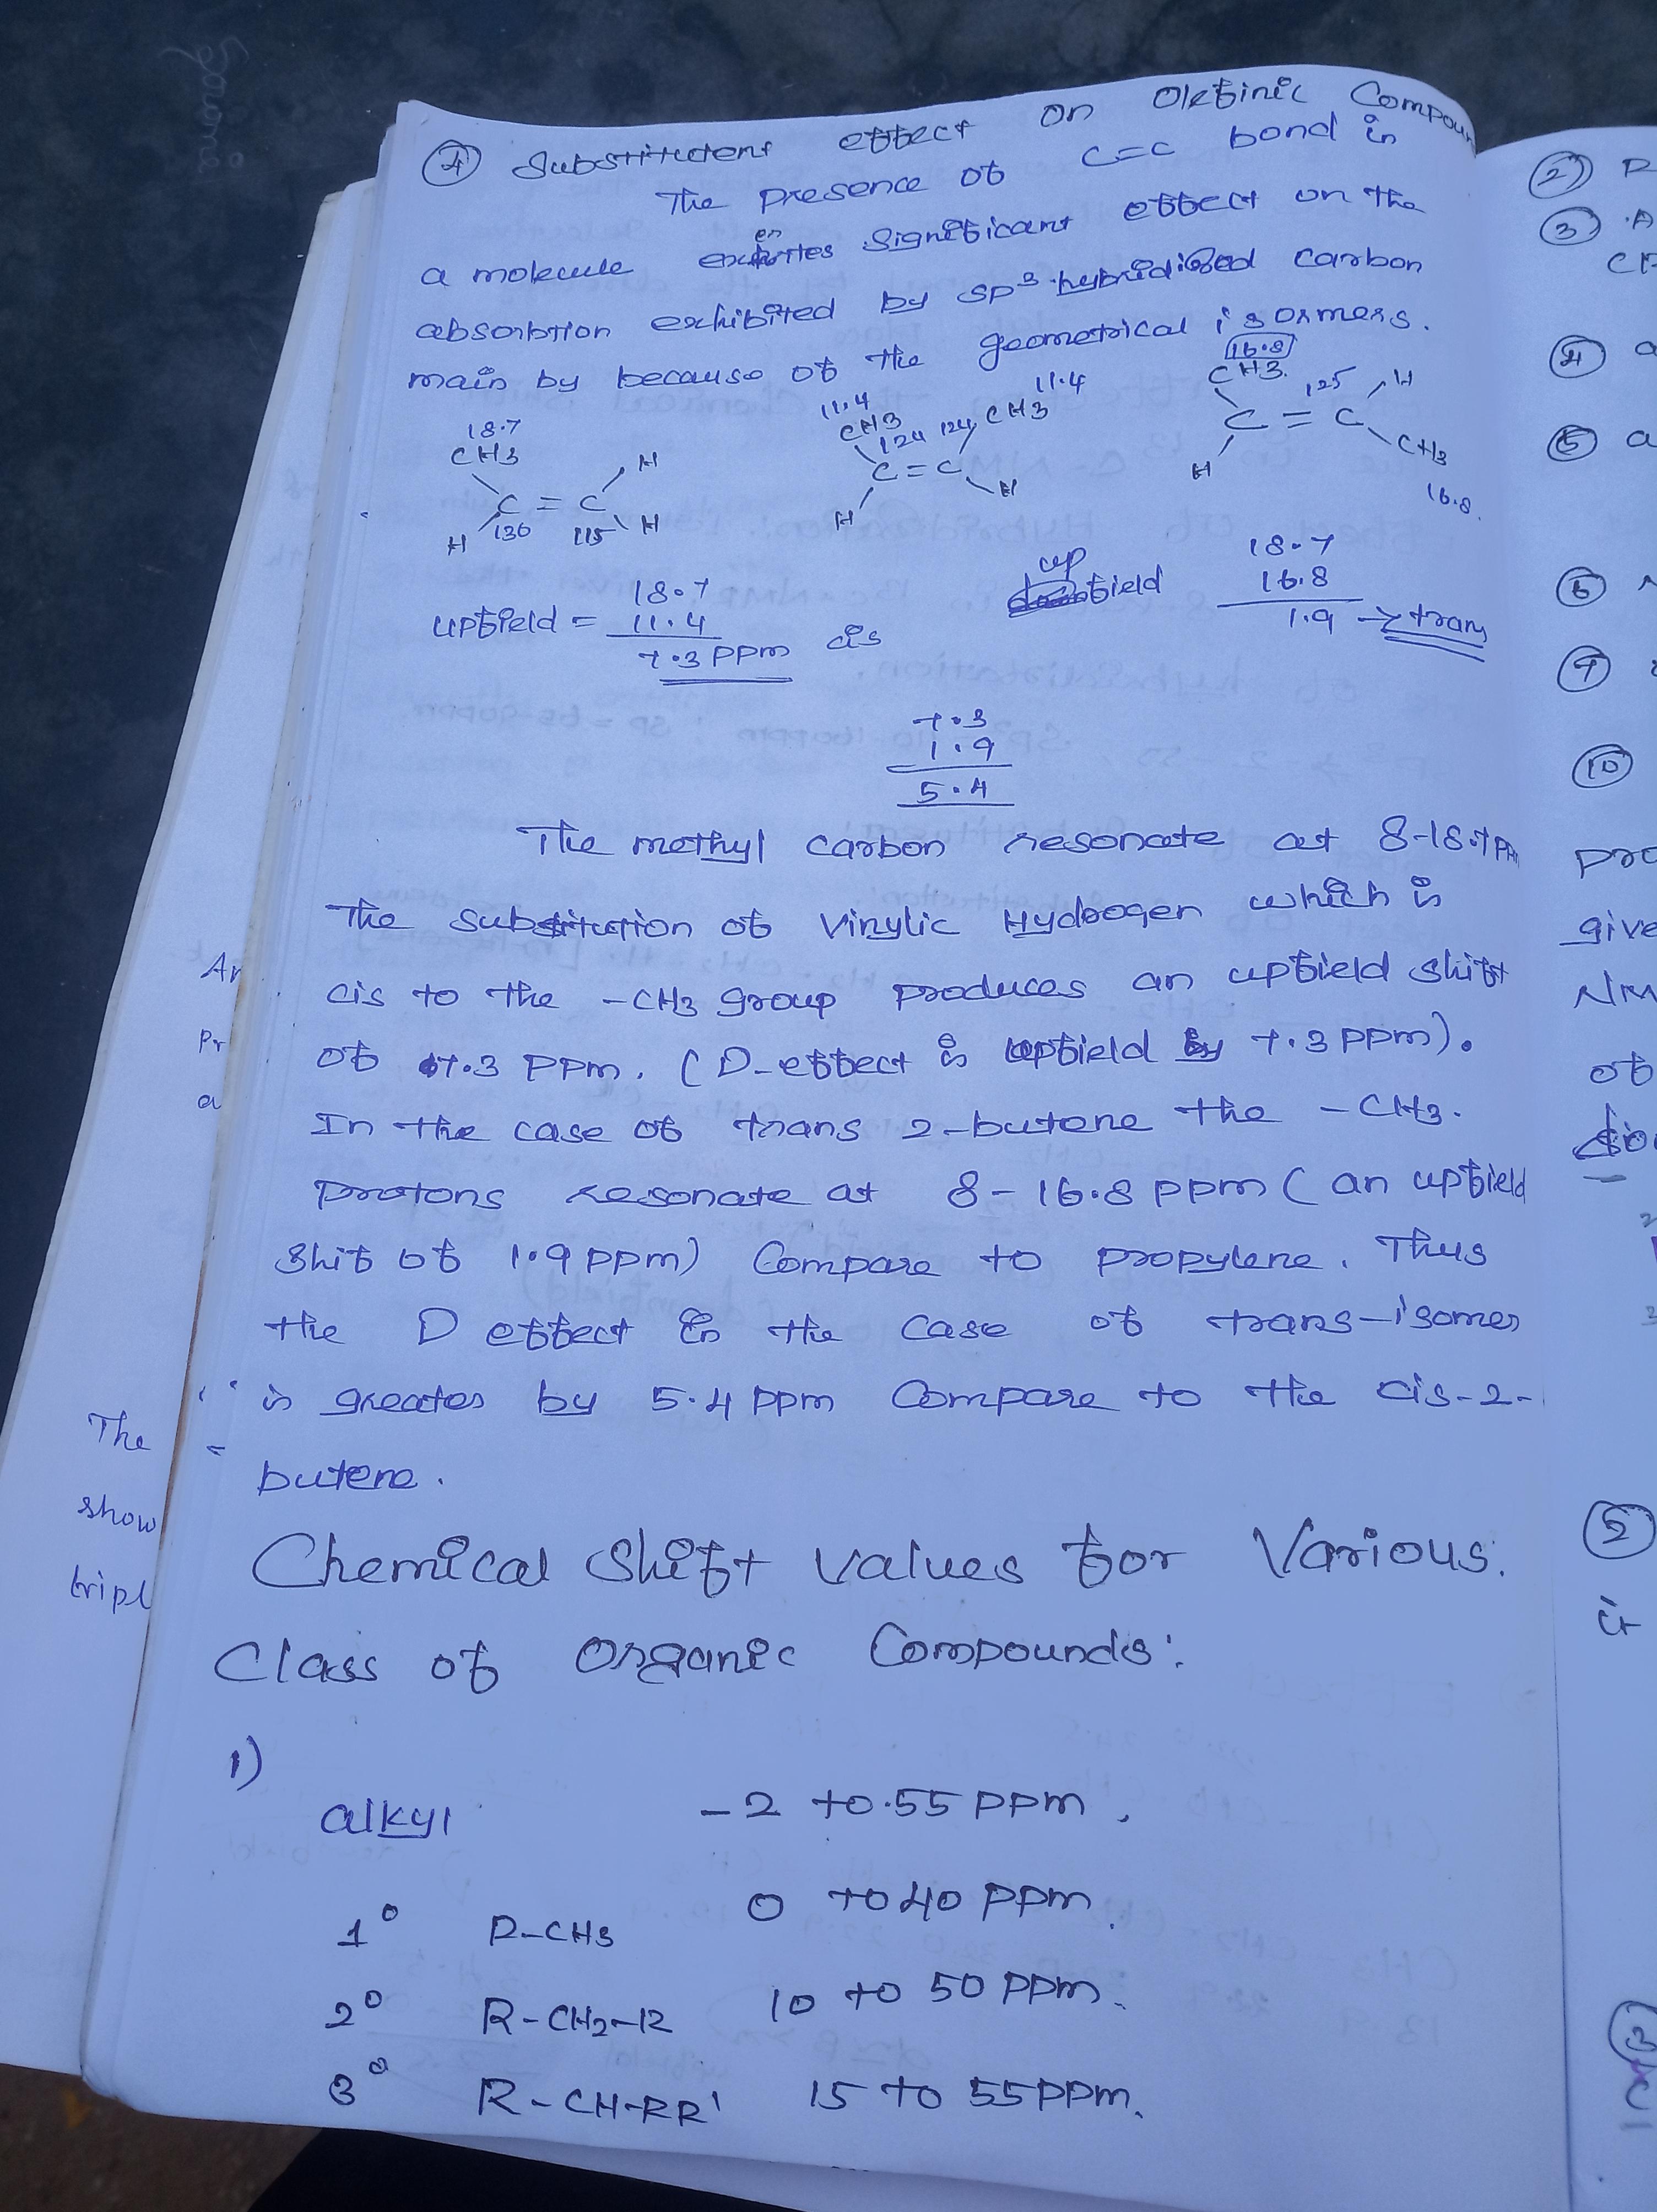 ④ Substitutent effect on Olefinic Compoun
The presence of C=C bond in
a molecule significant effect on the
absorbtion exhibited by SP³ hybridised carbon
main by because of the geometrical isormers.
18.7
CH3 H
C = C
H 136 115 H
11.4 11.4
CH3 124 124 CH3
C = C
H H
16.8
CH3 125 H
C = C
H CH3
16.8
upfield = 18.7
11.4
7.3 PPm cis
up
field 18.7
16.8
1.9 → trans
7.3
1.9
5.4
The methyl carbon resonate at 8-18.7 PPm
The substitution of vinylic Hydrogen which is
cis to the -CH3 group produces an upfield shift
of 7.3 PPm. (D-effect is upfield by 7.3 PPm).
In the case of trans 2-butene the -CH3.
Protons resonate at 8-16.8 PPm (an upfield
Shif of 1.9 PPm) Compare to propylene. Thus
the D effect in the case of trans-isomer
is greater by 5.4 PPm Compare to the cis-2-
butene.
Chemical Shift values for Various.
Class of Organic Compounds:
1)
alkyl -2 to 55 PPm.
1° R-CH3 0 to 40 PPm.
2° R-CH2-R 10 to 50 PPm.
3° R-CH-RR' 15 to 55 PPm.
Ar
Pr
a
The
show
tripl
②
③
④ a
⑤ a
⑥
⑦
⑩
pro
give
NM
of
②
it
③
C